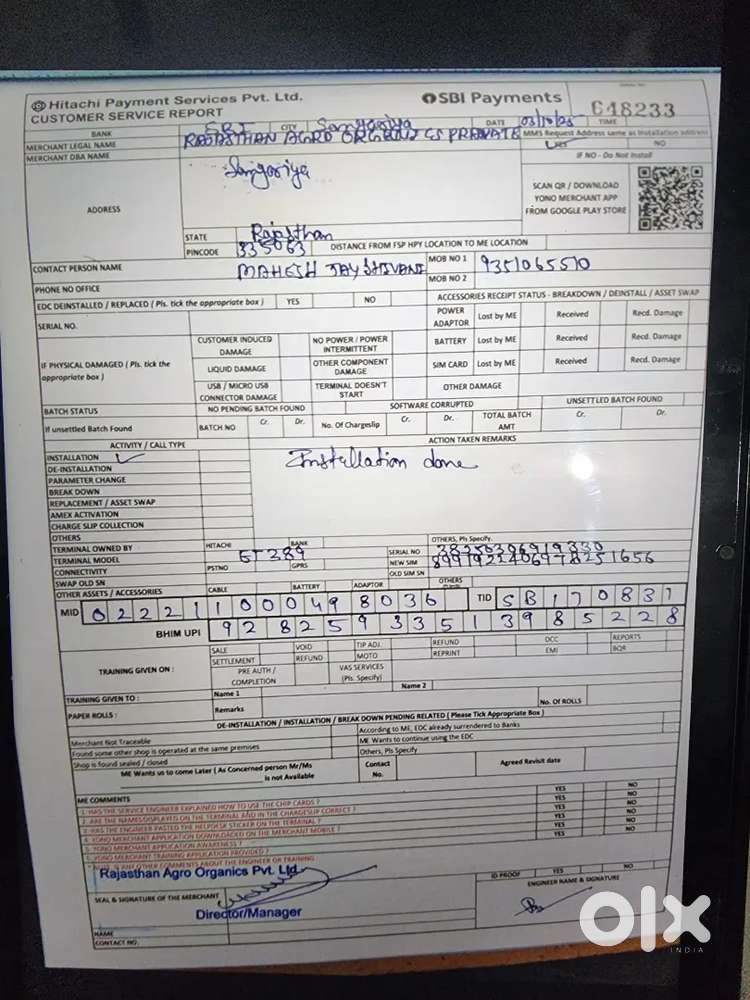 Hitachi Payment Services Pvt. Ltd.
SBI Payments
CUSTOMER SERVICE REPORT
648233
BANK SBI CITY Sangariya DATE 03/10/25 TIME
MERCHANT LEGAL NAME RAJASTHAN AGRO ORGANICS PRIVATE
MMS Request Address same as Installation address
MERCHANT DBA NAME
YES NO
IF NO - Do Not Install
ADDRESS Sangariya
SCAN QR / DOWNLOAD
YONO MERCHANT APP
FROM GOOGLE PLAY STORE
STATE Rajasthan
PINCODE 335063 DISTANCE FROM FSP HPY LOCATION TO ME LOCATION
CONTACT PERSON NAME MAHESH JAYSHIVANI MOB NO 1 9351065510
PHONE NO OFFICE MOB NO 2
EDC DEINSTALLED / REPLACED ( Pls. tick the appropriate box ) YES NO
ACCESSORIES RECEIPT STATUS - BREAKDOWN / DEINSTALL / ASSET SWAP
SERIAL NO.
POWER ADAPTOR Lost by ME Received Recd. Damage
IF PHYSICAL DAMAGED ( Pls. tick the appropriate box )
CUSTOMER INDUCED DAMAGE
NO POWER / POWER INTERMITTENT
BATTERY Lost by ME Received Recd. Damage
LIQUID DAMAGE
OTHER COMPONENT DAMAGE
SIM CARD Lost by ME Received Recd. Damage
USB / MICRO USB CONNECTOR DAMAGE
TERMINAL DOESN'T START
OTHER DAMAGE
BATCH STATUS NO PENDING BATCH FOUND SOFTWARE CORRUPTED UNSETTLED BATCH FOUND
If unsettled Batch Found BATCH NO Cr. Dr. No. Of Chargeslip Cr. Dr. TOTAL BATCH AMT Cr. Dr.
ACTIVITY / CALL TYPE ACTION TAKEN REMARKS
INSTALLATION ✓ Installation done
DE-INSTALLATION
PARAMETER CHANGE
BREAK DOWN
REPLACEMENT / ASSET SWAP
AMEX ACTIVATION
CHARGE SLIP COLLECTION
OTHERS
TERMINAL OWNED BY HITACHI BANK OTHERS, Pls Specify.
TERMINAL MODEL ET289 SERIAL NO
CONNECTIVITY PSTNO GPRS NEW SIM
SWAP OLD SN OLD SIM SN
OTHER ASSETS / ACCESSORIES CABLE BATTERY ADAPTOR OTHERS
MID 022211000498036 TID SB170837
BHIM UPI 92825933513985228
TRAINING GIVEN ON :
SALE VOID TIP ADJ. REFUND DCC REPORTS
SETTLEMENT REFUND MOTO REPRINT EMI BQR
PRE AUTH / COMPLETION
VAS SERVICES (Pls. Specify)
TRAINING GIVEN TO : Name 1 Name 2
PAPER ROLLS : Remarks No. Of ROLLS
DE-INSTALLATION / INSTALLATION / BREAK DOWN PENDING RELATED ( Please Tick Appropriate Box )
Merchant Not Traceable According to ME, EDC already surrendered to Banks
Found some other shop is operated at the same premises ME Wants to continue using the EDC
Shop is found sealed / closed Others, Pls Specify
ME Wants us to come Later ( As Concerned person Mr/Ms is not Available
Contact No. Agreed Revisit date
ME COMMENTS
1. HAS THE SERVICE ENGINEER EXPLAINED HOW TO USE THE CHIP CARDS ? YES NO
2. ARE THE NAMES DISPLAYED ON THE TERMINAL AND IN THE CHARGESLIP CORRECT ? YES NO
3. HAS THE ENGINEER PASTED THE HELPDESK STICKER ON THE TERMINAL ? YES NO
4. YONO MERCHANT APPLICATION DOWNLOADED ON THE MERCHANT MOBILE ? YES NO
5. YONO MERCHANT APPLICATION AWARENESS ? YES NO
6. YONO MERCHANT TRAINING APPLICATION PROVIDED ?
ANY OTHER COMMENTS ABOUT THE ENGINEER OR TRAINING
Rajasthan Agro Organics Pvt. Ltd
ID PROOF YES NO
SEAL & SIGNATURE OF THE MERCHANT
ENGINEER NAME & SIGNATURE
Director/Manager
NAME
CONTACT NO.
olx
INDIA